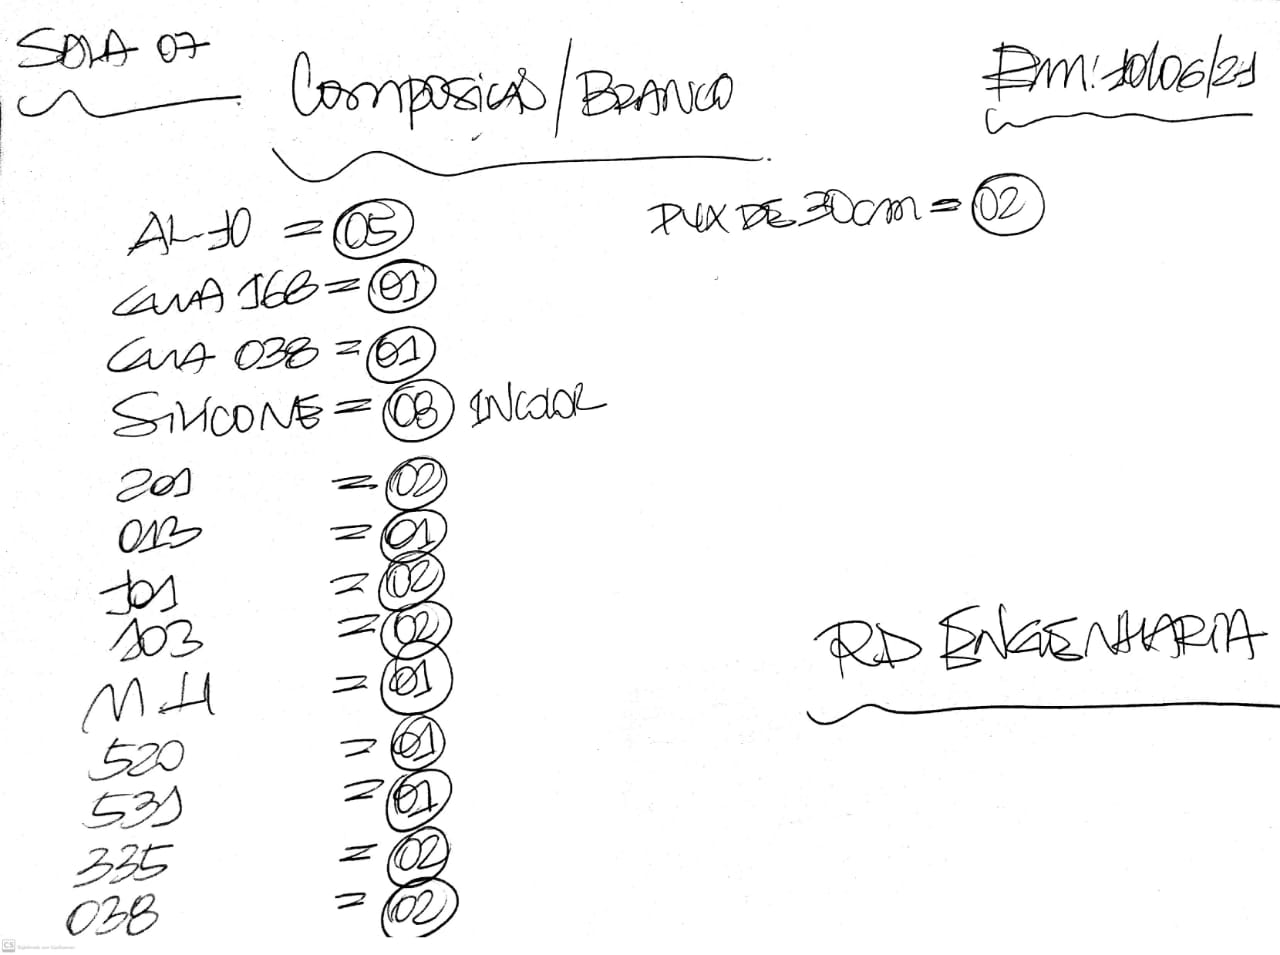 SALA 07
Composição/BRANCO
Em: 10/06/21
AL-10 = 05
CUA 168 = 01
CUA 038 = 01
SILICONE = 08 INCOLOR
201 = 02
013 = 01
101 = 02
103 = 02
M-H = 01
520 = 01
531 = 01
335 = 02
038 = 02
PUX DE 30cm = 02
RD ENGENHARIA
CS Digitalizado com CamScanner